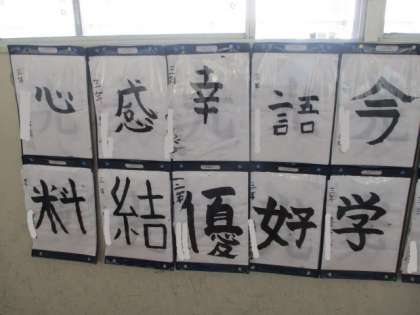 心 感 幸 語 今
料 結 優 好 学